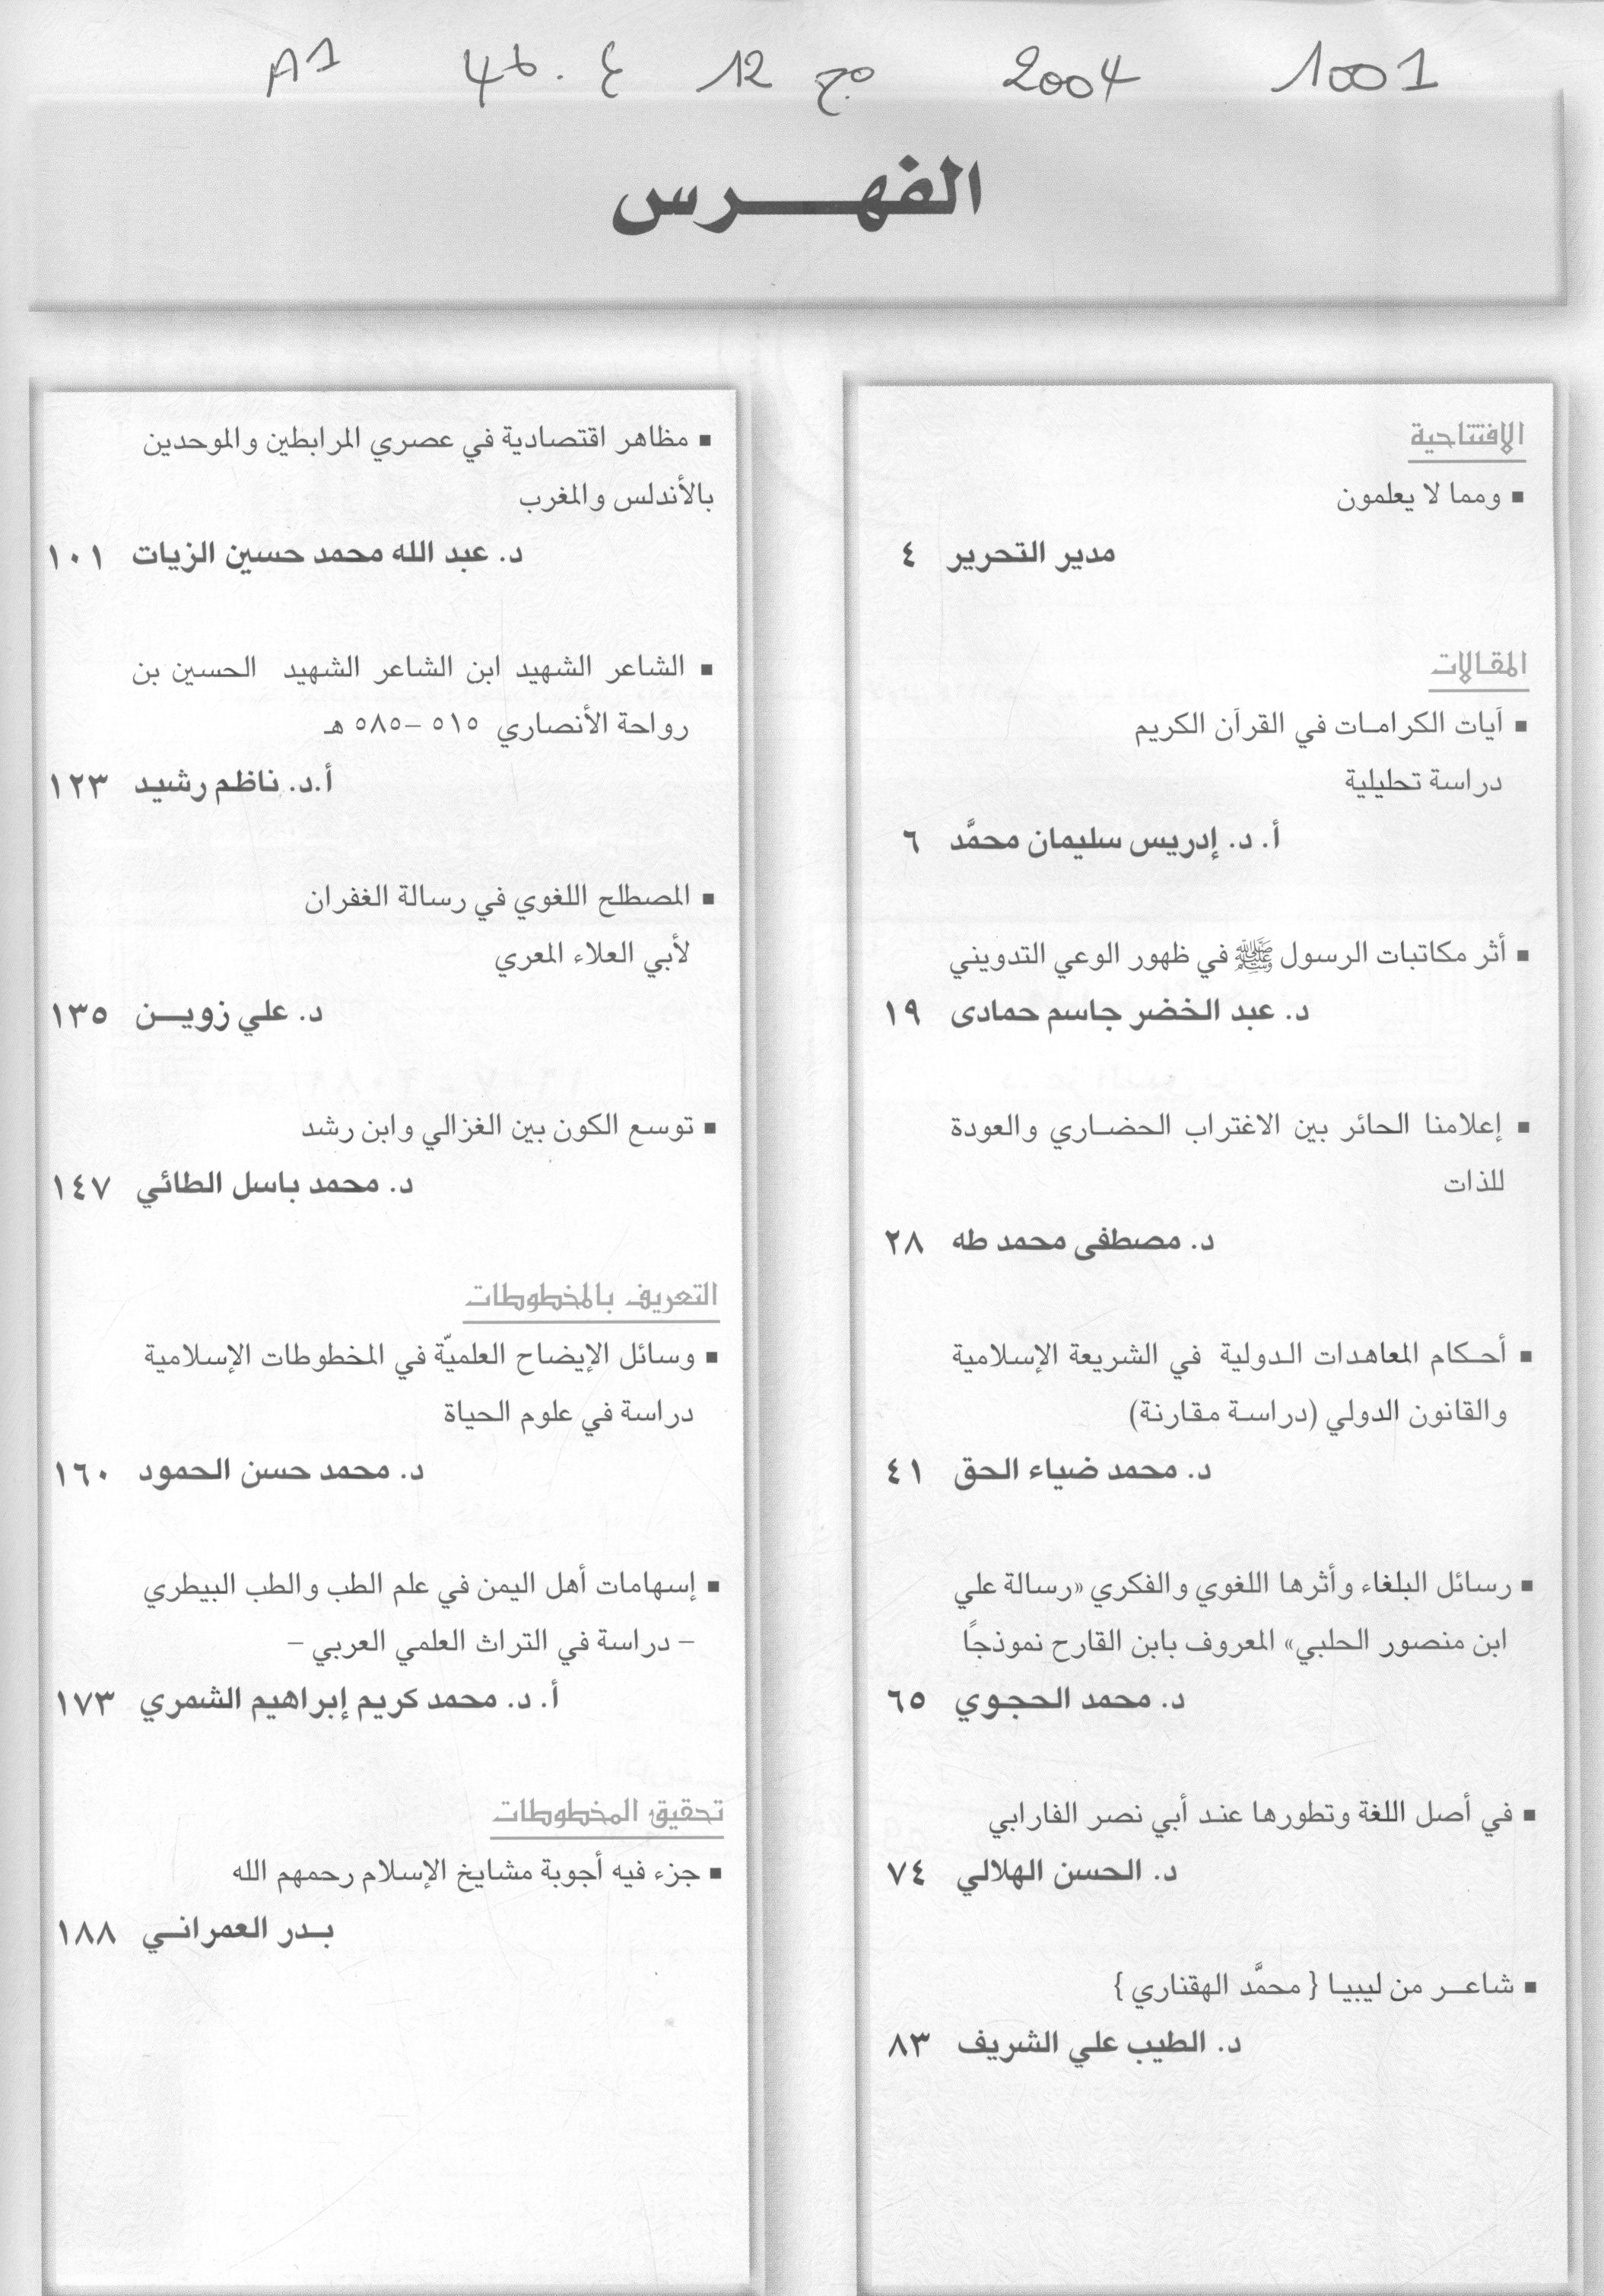 1001 2004 مج 12 ع. 46 A1
الفهـــرس
الافتتاحية
▪ ومما لا يعلمون
مدير التحرير ٤
المقالات
▪ آيات الكرامات في القرآن الكريم
دراسة تحليلية
أ. د. إدريس سليمان محمَّد ٦
▪ أثر مكاتبات الرسول ﷺ في ظهور الوعي التدويني
د. عبد الخضر جاسم حمادى ١٩
▪ إعلامنا الحائر بين الاغتراب الحضاري والعودة
للذات
د. مصطفى محمد طه ٢٨
▪ أحكام المعاهدات الدولية في الشريعة الإسلامية
والقانون الدولي (دراسة مقارنة)
د. محمد ضياء الحق ٤١
▪ رسائل البلغاء وأثرها اللغوي والفكري «رسالة علي
ابن منصور الحلبي» المعروف بابن القارح نموذجًا
د. محمد الحجوي ٦٥
▪ في أصل اللغة وتطورها عند أبي نصر الفارابي
د. الحسن الهلالي ٧٤
▪ شاعر من ليبيا { محمَّد الهقناري }
د. الطيب علي الشريف ٨٣
▪ مظاهر اقتصادية في عصري المرابطين والموحدين
بالأندلس والمغرب
د. عبد الله محمد حسين الزيات ١٠١
▪ الشاعر الشهيد ابن الشاعر الشهيد الحسين بن
رواحة الأنصاري ٥١٥ –٥٨٥ هـ
أ.د. ناظم رشيد ١٢٣
▪ المصطلح اللغوي في رسالة الغفران
لأبي العلاء المعري
د. علي زويـن ١٣٥
▪ توسع الكون بين الغزالي وابن رشد
د. محمد باسل الطائي ١٤٧
التعريف بالمخطوطات
▪ وسائل الإيضاح العلميّة في المخطوطات الإسلامية
دراسة في علوم الحياة
د. محمد حسن الحمود ١٦٠
▪ إسهامات أهل اليمن في علم الطب والطب البيطري
– دراسة في التراث العلمي العربي –
أ. د. محمد كريم إبراهيم الشمري ١٧٣
تحقيق المخطوطات
▪ جزء فيه أجوبة مشايخ الإسلام رحمهم الله
بـدر العمرانـي ١٨٨